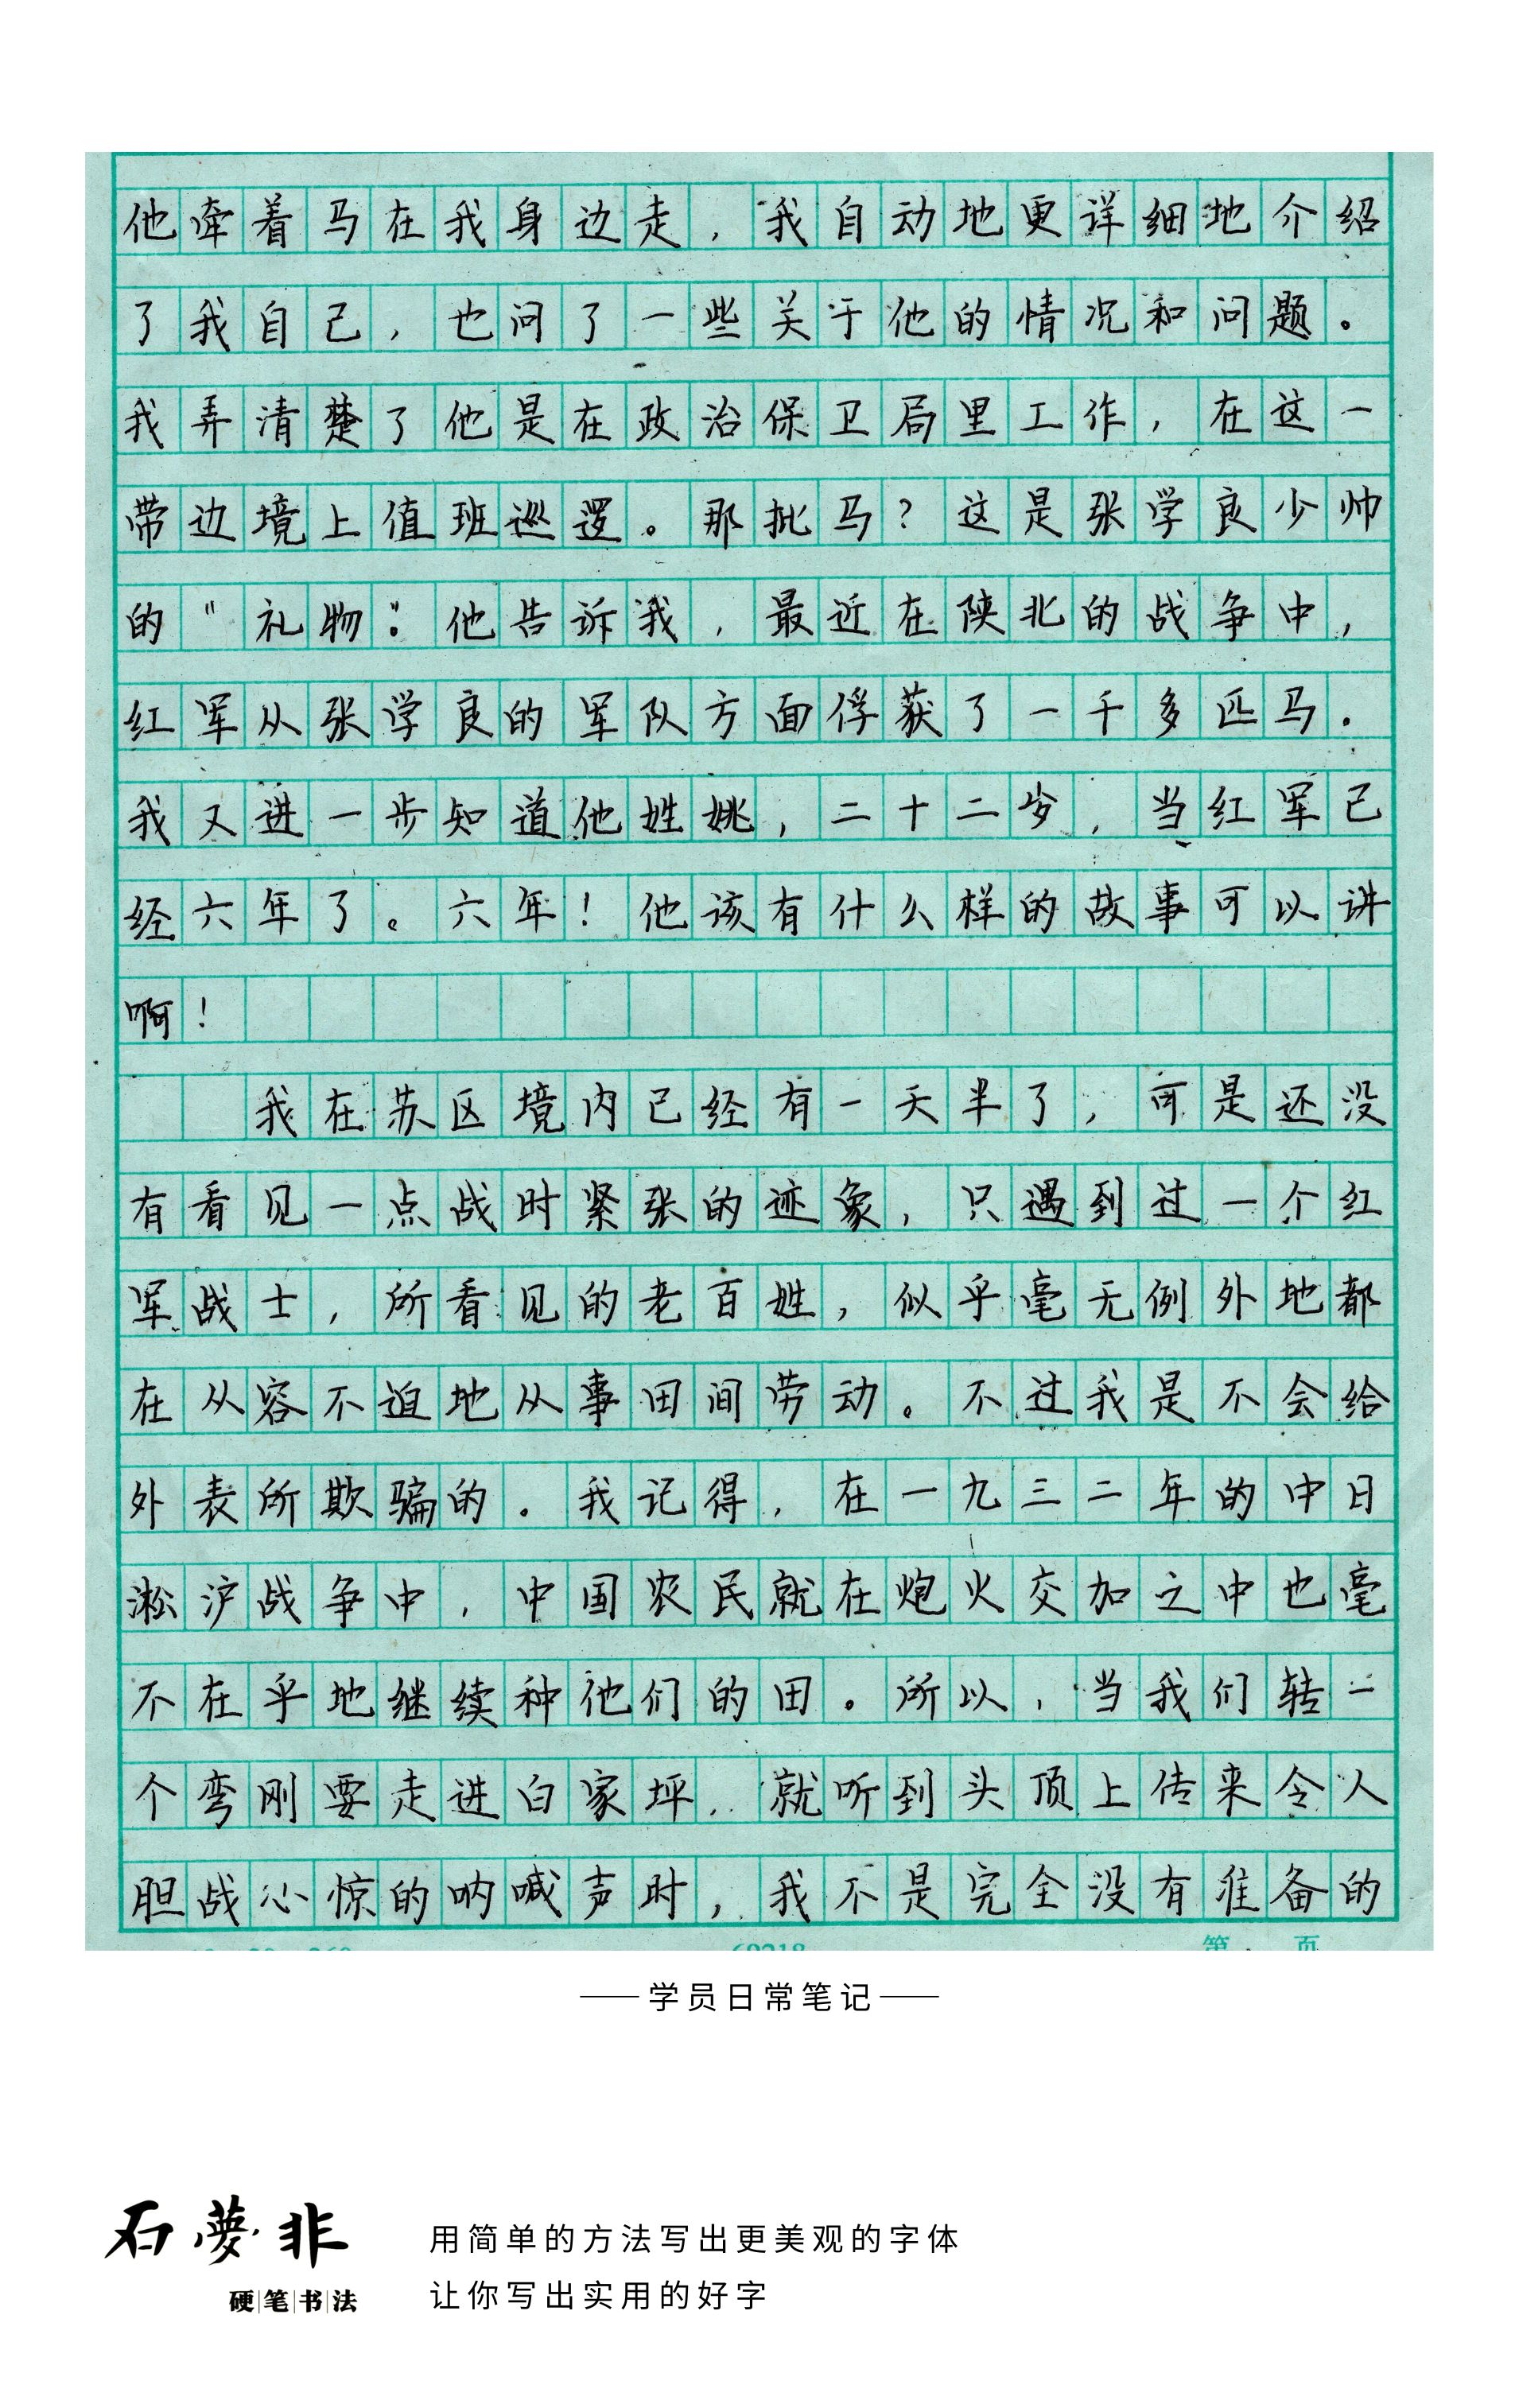 他牵着马在我身边走，我自动地更详细地介绍
了我自己，也问了一些关于他的情况和问题。
我弄清楚了他是在政治保卫局里工作，在这一
带边境上值班巡逻。那批马？这是张学良少帅
的“礼物”：他告诉我，最近在陕北的战争中，
红军从张学良的军队方面俘获了一千多匹马.
我又进一步知道他姓姚，二十二岁，当红军已
经六年了。六年！他该有什么样的故事可以讲
啊！
我在苏区境内已经有一天半了，可是还没
有看见一点战时紧张的迹象，只遇到过一个红
军战士，所看见的老百姓，似乎毫无例外地都
在从容不迫地从事田间劳动。不过我是不会给
外表所欺骗的.我记得，在一九三二年的中日
淞沪战争中，中国农民就在炮火交加之中也毫
不在乎地继续种他们的田。所以，当我们转一
个弯刚要走进白家坪，就听到头顶上传来令人
胆战心惊的呐喊声时，我不是完全没有准备的
第 页
学员日常笔记
石夢非
硬笔书法
用简单的方法写出更美观的字体
让你写出实用的好字